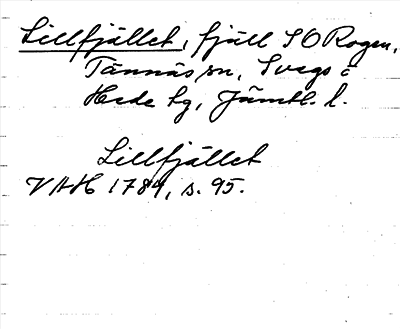 Lillfjället, fjäll SO Rogen,
Tännäs sn, Svegs o
Hede tg, Jämtl. l.
Lillfjället
VAH 1784, s. 95.